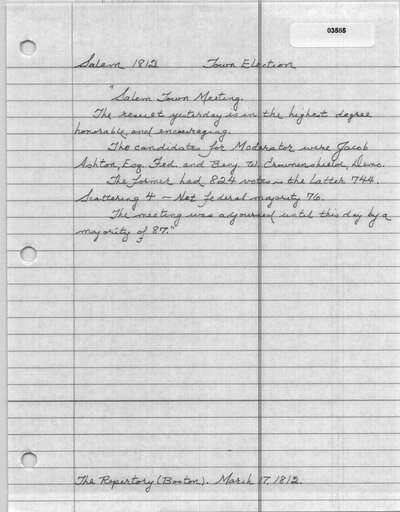 03555
Salem 1812 Town Election
"Salem Town Meeting.
The result yesterday is in the highest degree
honorable, and encouraging.
The candidates for Moderator were Jacob
Ashton, Esq. Fed. and Benj. W. Crowninshield, Demo.
The former had 824 votes ~ the latter 744.
Scattering 4 ~ Net federal majority 76.
The meeting was adjourned until this day by a
majority of 87."
The Repertory (Boston). March 17, 1812.